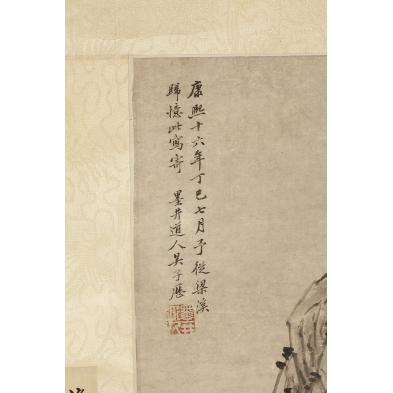 康熙十六年丁巳七月予從梁溪
歸憶此寫寄 墨井道人吳子歷